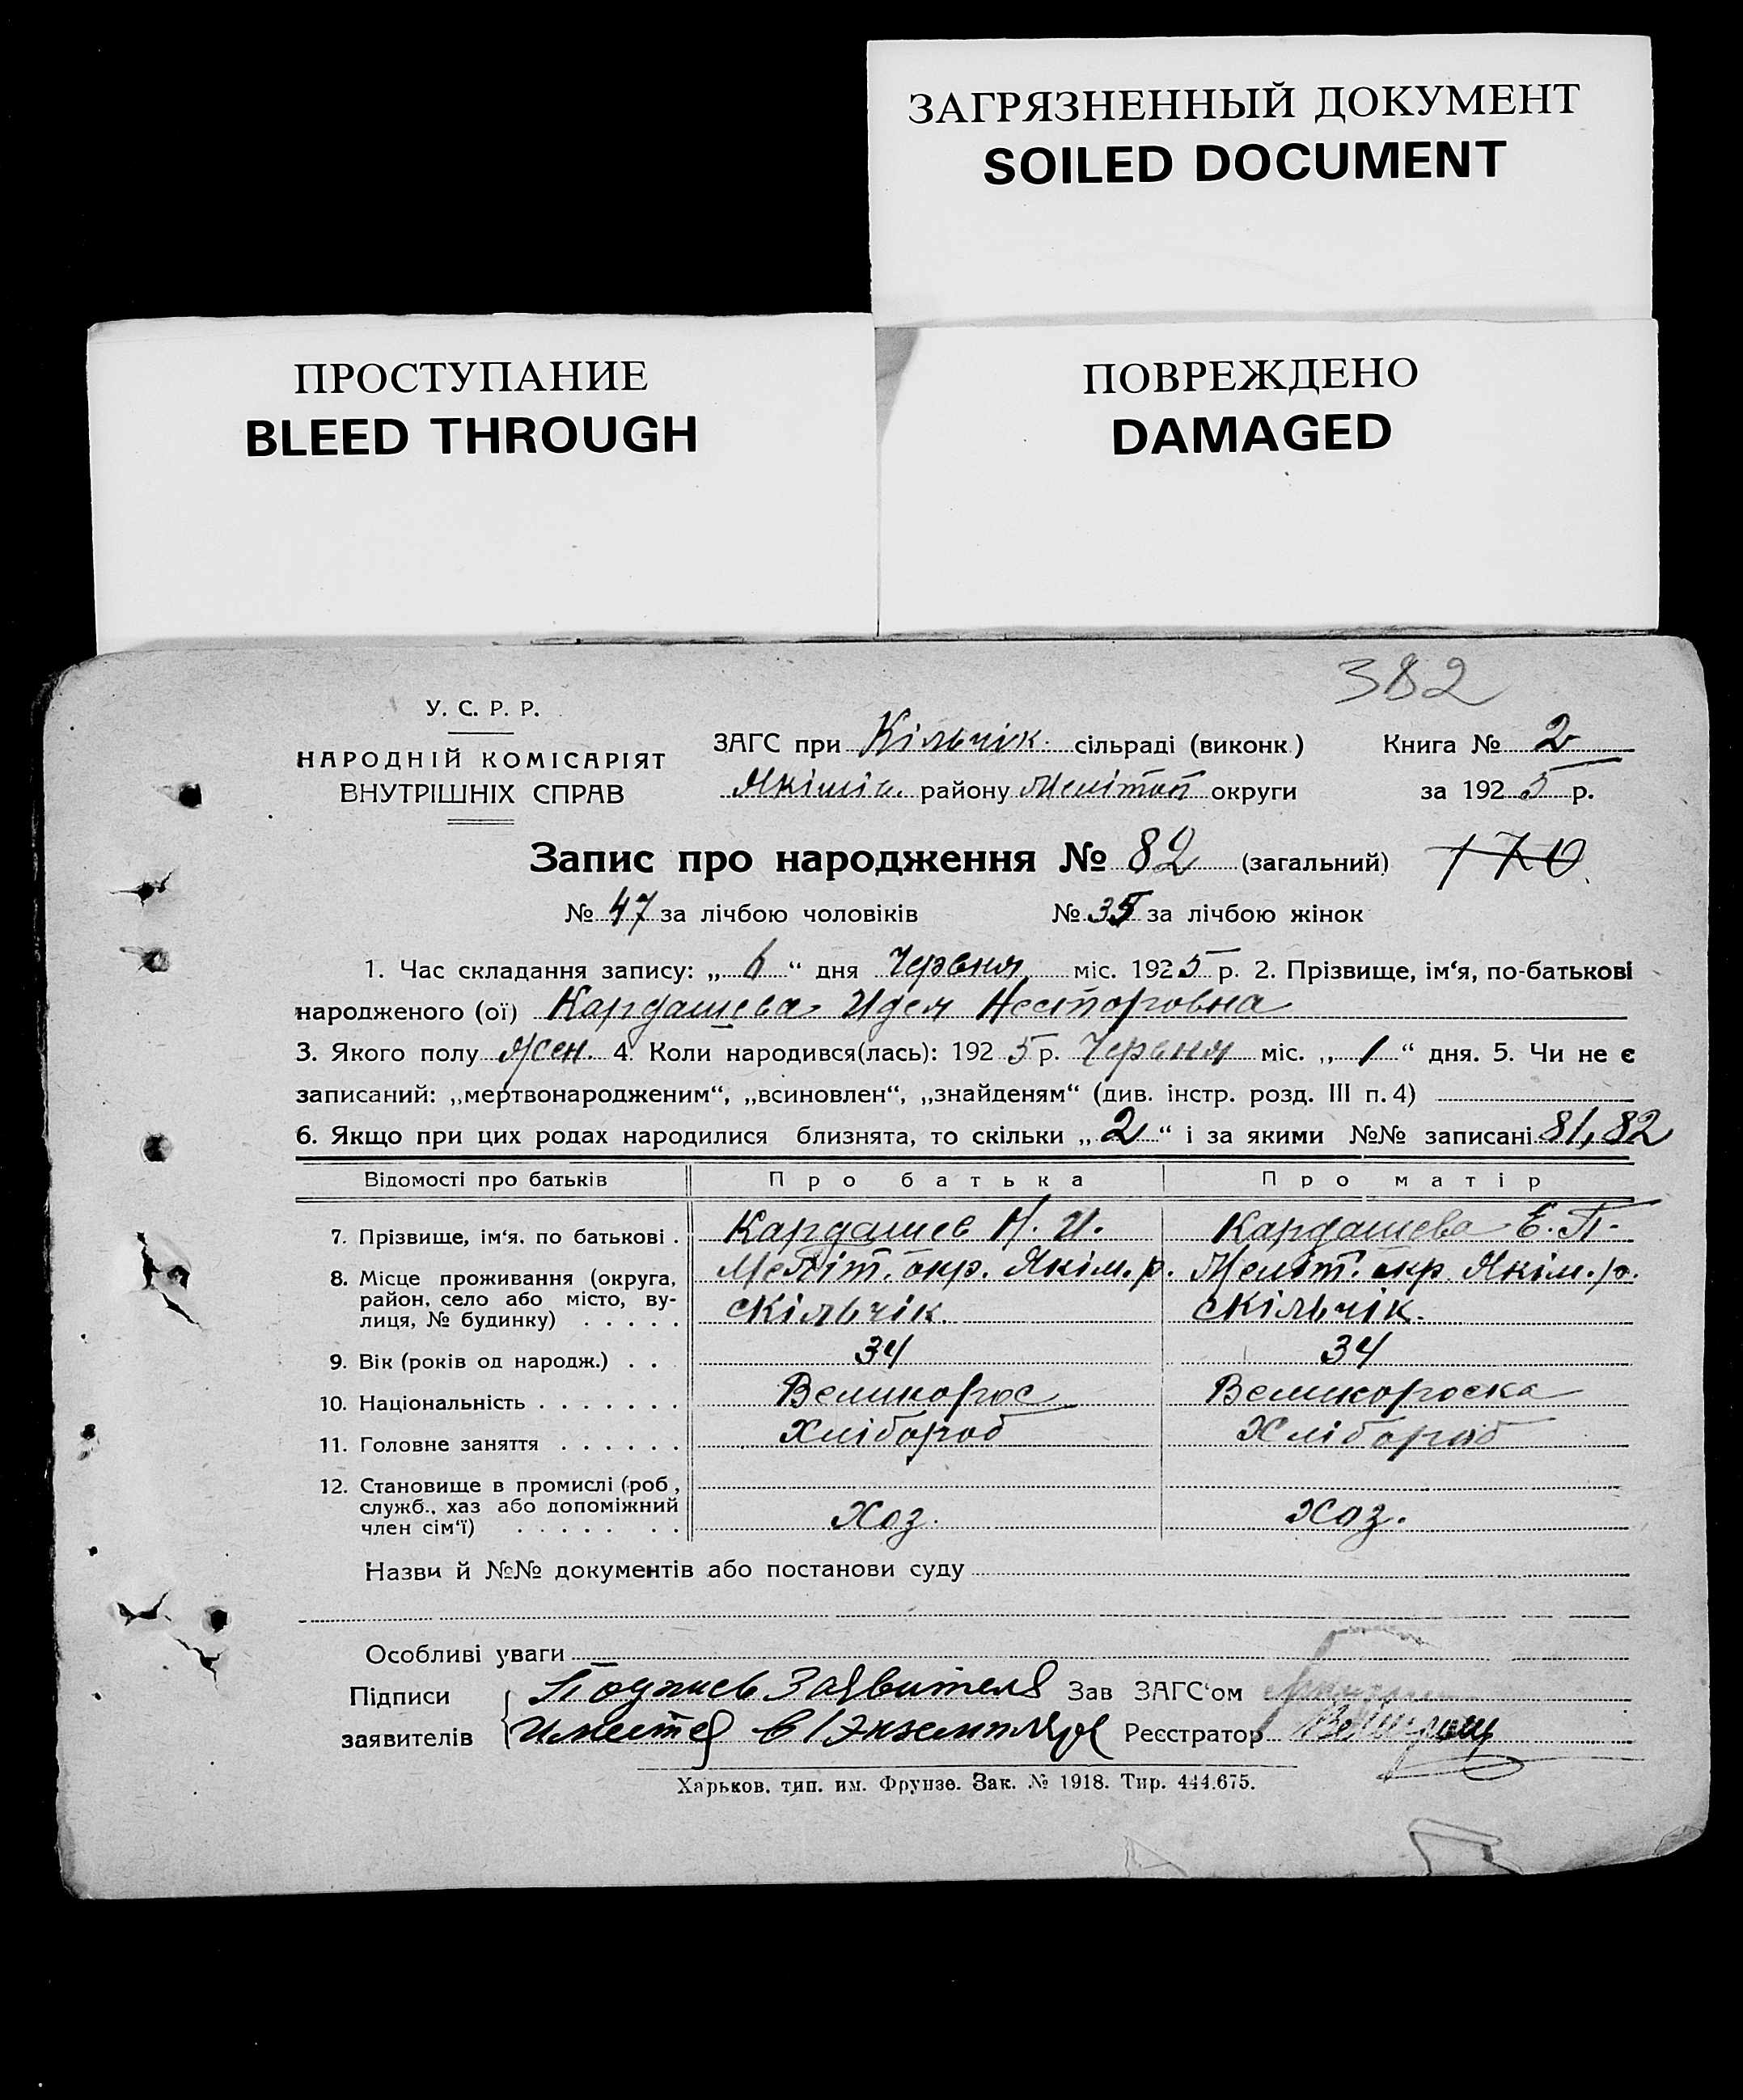 ЗАГРЯЗНЕННЫЙ ДОКУМЕНТ
SOILED DOCUMENT
ПРОСТУПАНИЕ
BLEED THROUGH
ПОВРЕЖДЕНО
DAMAGED
382
У. С. Р. Р.
НАРОДНІЙ КОМІСАРІЯТ
ВНУТРІШНІХ СПРАВ
ЗАГС при Кільчік. сільраді (виконк) Книга № 2
Якімів. району Мелітоп округи за 1925 р.
Запис про народження № 82 (загальний) 170
№ 47 за лічбою чоловіків № 35 за лічбою жінок
1. Час складання запису: „6“ дня Червня міс. 1925 р. 2. Прізвище, ім‘я, по-батькові
народженого (ої) Кардашева Идея Несторовна
3. Якого полу Жен. 4. Коли народився(лась): 1925 р. Червня міс. „1“ дня. 5. Чи не є
записаний: „мертвонародженим“, „всиновлен“, „знайденям“ (див. інстр. розд. III п. 4)
6. Якщо при цих родах народилися близнята, то скільки „2“ і за якими №№ записані 81, 82
Відомості про батьків Про батька Про матір
7. Прізвище, ім‘я. по батькові . Кардашев Н. И. Кардашева Е. П.
8. Місце проживання (округа, Меліт. окр. Якім. р. Меліт. окр Якім. р.
район, село або місто, ву-
лиця, № будинку) . . . . . с Кільчік. с Кільчік.
9. Вік (років од народж.) . . 34 34
10. Національність . . . . . . . Великорос Великороска
11. Головне заняття . . . . . . Хлібороб Хлібороб
12. Становище в промислі (роб,
служб., хаз або допоміжний
член сім‘ї) . . . . . . . Хоз. Хоз.
Назви й №№ документів або постанови суду
Особливі уваги
Підписи Подпись Заявителя Зав ЗАГС‘ом
заявителів имеется в 1 экземпляре Реєстратор
Харьков. тип. им. Фрунзе. Зак. № 1918. Тир. 444.675.